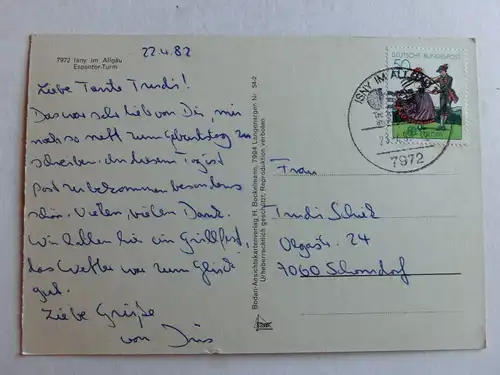 22.4.82
7972 Isny im Allgäu
Espantor-Turm
Liebe Tante Trudi!
Das war sehr lieb von Dir, mir
noch so nett zum Geburtstag zu
schreiben. An diesem Tag ist
Post zu bekommen besonders
schön. Vielen, vielen Dank.
Wir hatten hier ein Grillfest,
das Wetter war zum Glück
gut.
Liebe Grüße
von
Boden-Ansichtskartenverlag H. Bockelmann, 7994 Langenargen Nr. 54-2
Urheberrechtlich geschützt, Reproduktion verboten
DEUTSCHE BUNDESPOST
50
ISNY IM ALLGÄU
7972
Frau
Trudi
24
7060 Schorndorf